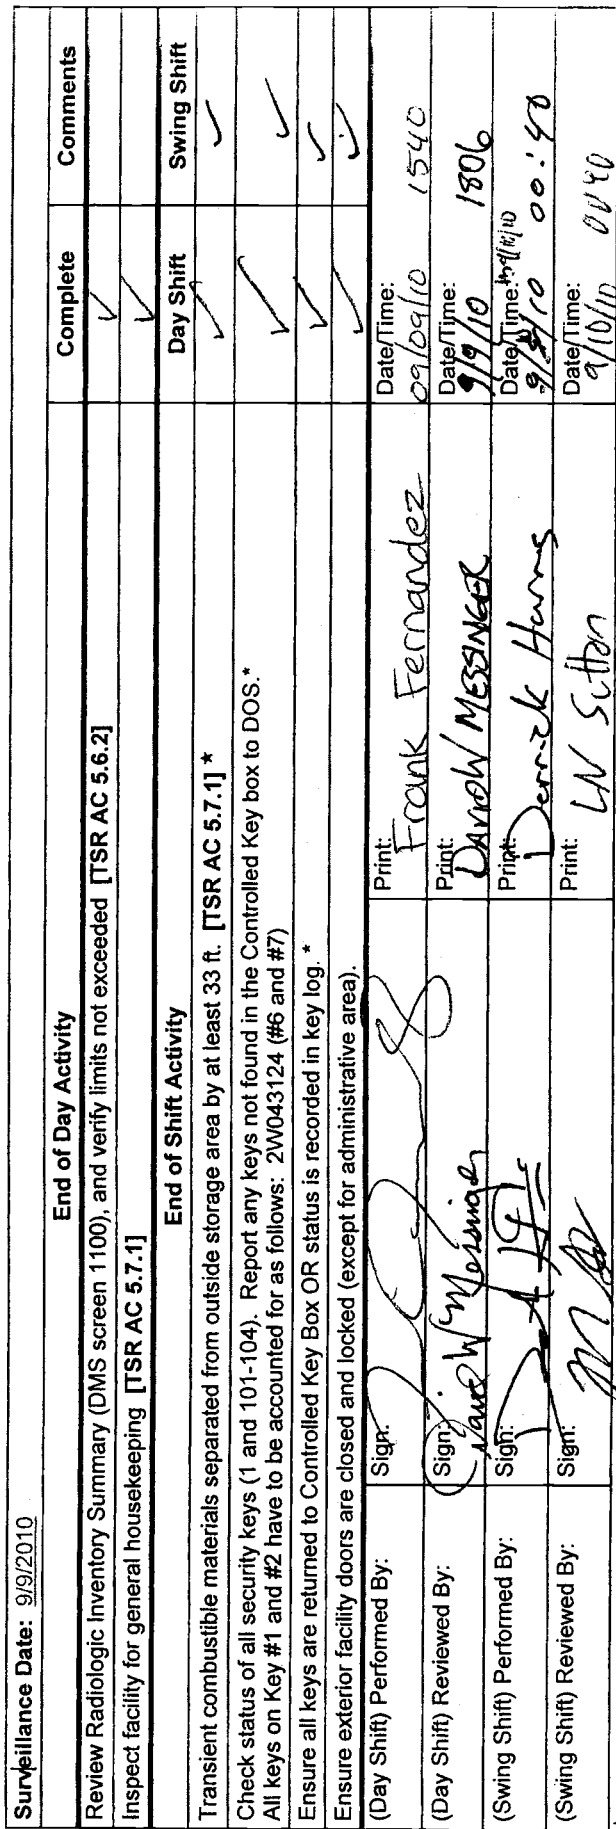 Surveillance Date: 9/9/2010
End of Day Activity Complete Comments
Review Radiologic Inventory Summary (DMS screen 1100), and verify limits not exceeded [TSR AC 5.6.2] ✓
Inspect facility for general housekeeping [TSR AC 5.7.1] ✓
End of Shift Activity Day Shift Swing Shift
Transient combustible materials separated from outside storage area by at least 33 ft. [TSR AC 5.7.1] * ✓ ✓
Check status of all security keys (1 and 101-104). Report any keys not found in the Controlled Key box to DOS.* ✓ ✓
All keys on Key #1 and #2 have to be accounted for as follows: 2W043124 (#6 and #7)
Ensure all keys are returned to Controlled Key Box OR status is recorded in key log. * ✓ ✓
Ensure exterior facility doors are closed and locked (except for administrative area). ✓ ✓
(Day Shift) Performed By: Sign: Print: Frank Fernandez Date/Time: 09/09/10 1540
(Day Shift) Reviewed By: Sign: David W Messinger Print: DAVID W MESSINGER Date/Time: 9/9/10 1806
(Swing Shift) Performed By: Sign: Print: Derrick Date/Time: 00:40
(Swing Shift) Reviewed By: Sign: Print: LN Sutton Date/Time: 9/10/10 0040